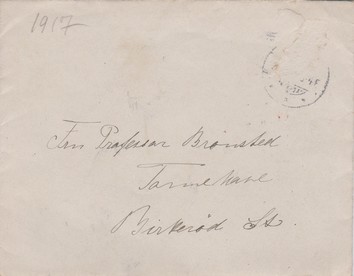 1917
Fru Professor Brønsted
Birkerød St.